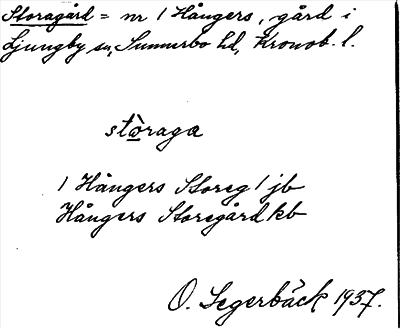 Storagård = nr 1 Hångers, gård i
Ljungby sn, Sunnerbo hd, Kronob. l.
stòraga
1 Hångers Storeg / jb
Hångers Storegård kb
O. Segerbäck 1937.